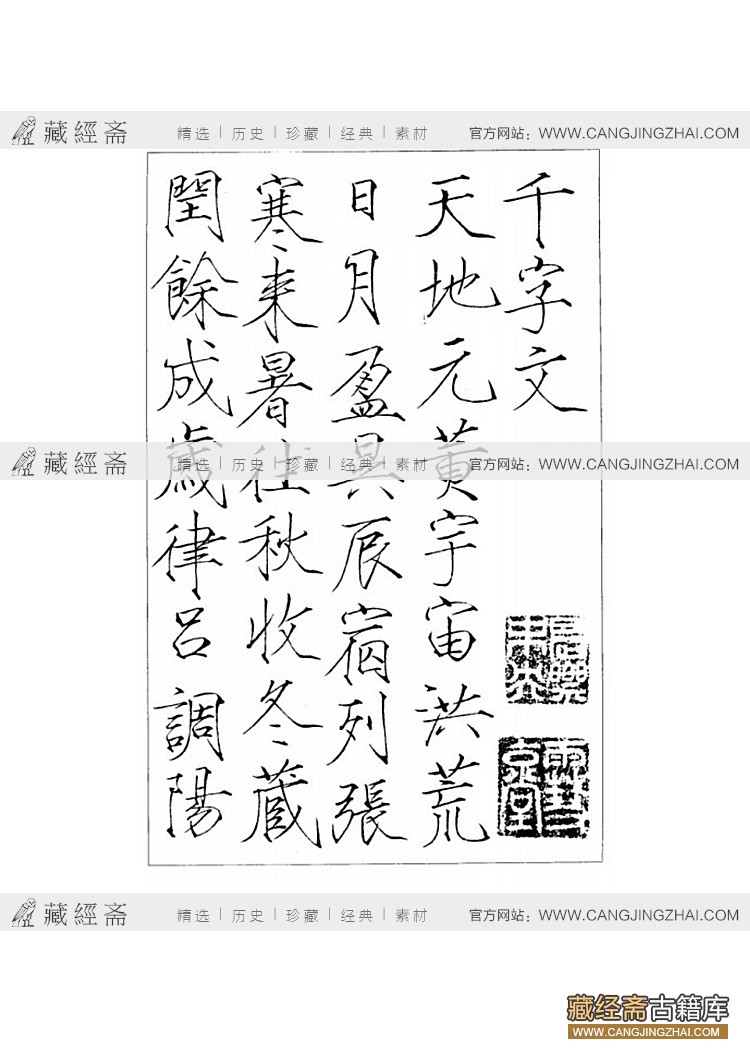 藏經斋 精选 | 历史 | 珍藏 | 经典 | 素材 官方网站：WWW.CANGJINGZHAI.COM
千字文
天地元黄宇宙洪荒
日月盈昃辰宿列張
寒来暑往秋收冬蔵
閏餘成歲律吕調陽
藏經斋 精选 | 历史 | 珍藏 | 经典 | 素材 官方网站：WWW.CANGJINGZHAI.COM
藏經斋 精选 | 历史 | 珍藏 | 经典 | 素材 官方网站：WWW.CANGJINGZHAI.COM
藏经斋古籍库
WWW.CANGJINGZHAI.COM